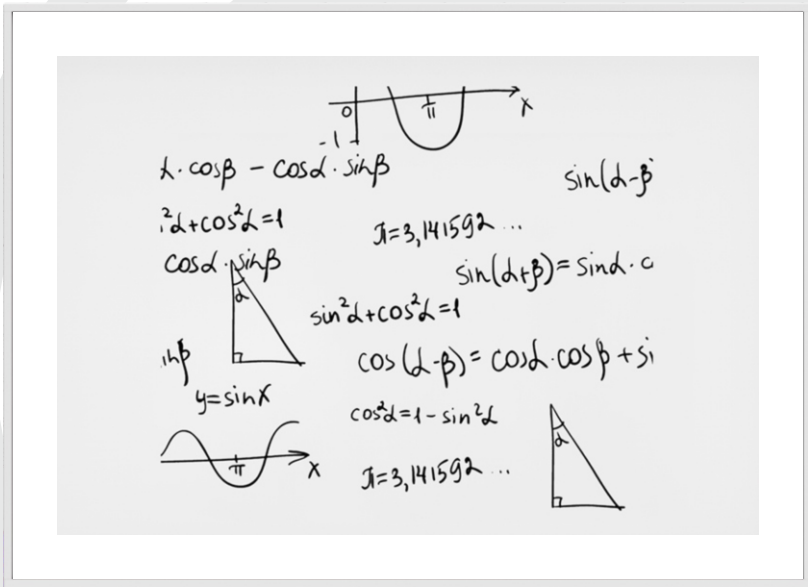 0 π x
-1
α·cosβ - cosα·sinβ
sin(α-β
²α+cos²α=1
π=3,141592...
cosα·sinβ
sin(α+β)=sinα·c
α
sin²α+cos²α=1
inβ
cos(α-β)=cosα·cosβ+si
y=sinx
cos²α=1-sin²α
α
π x
π=3,141592...